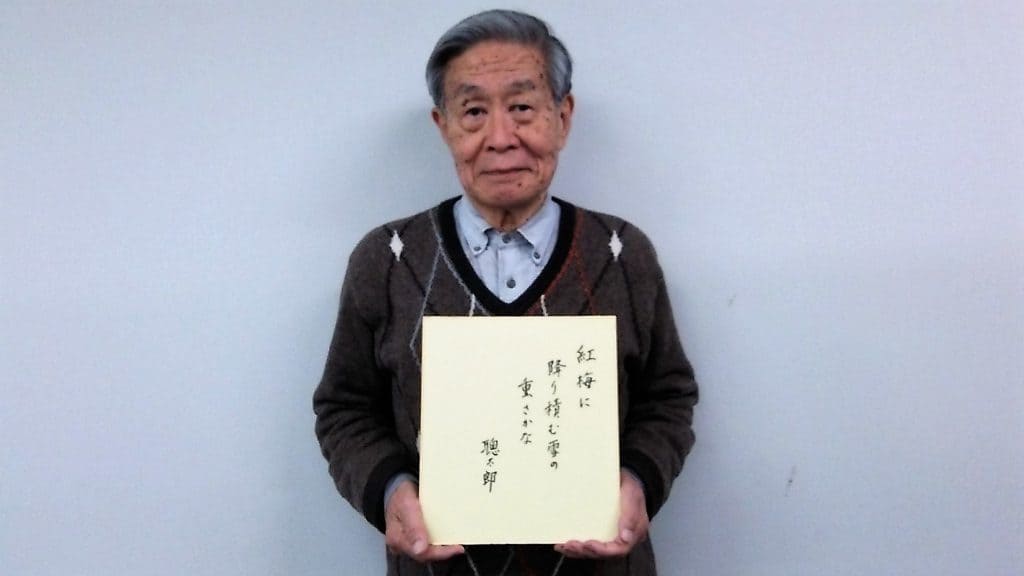 紅梅に
降り積む雪の
重さかな
聰太郎